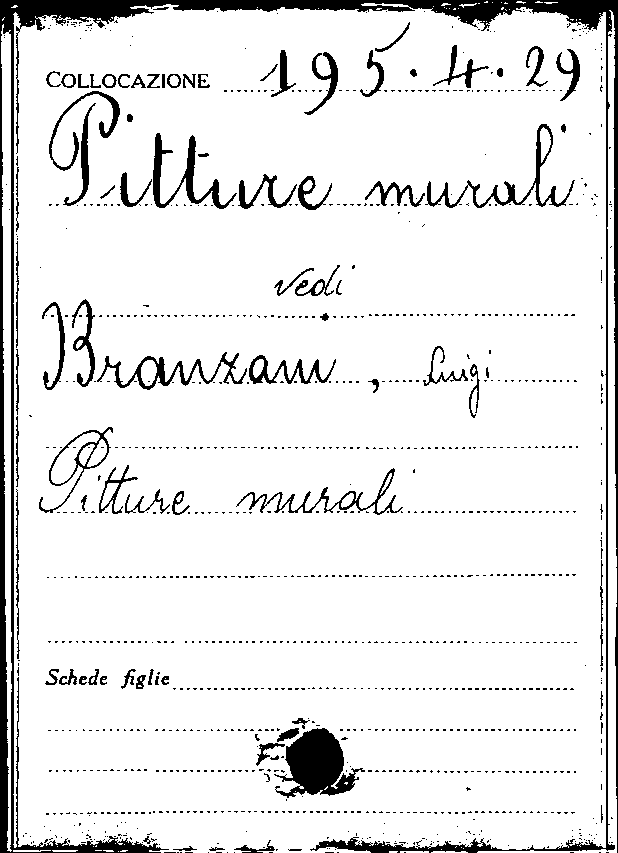 COLLOCAZIONE 195.4.29
Pitture murali
vedi
Branzani, Luigi
Pitture murali
Schede figlie